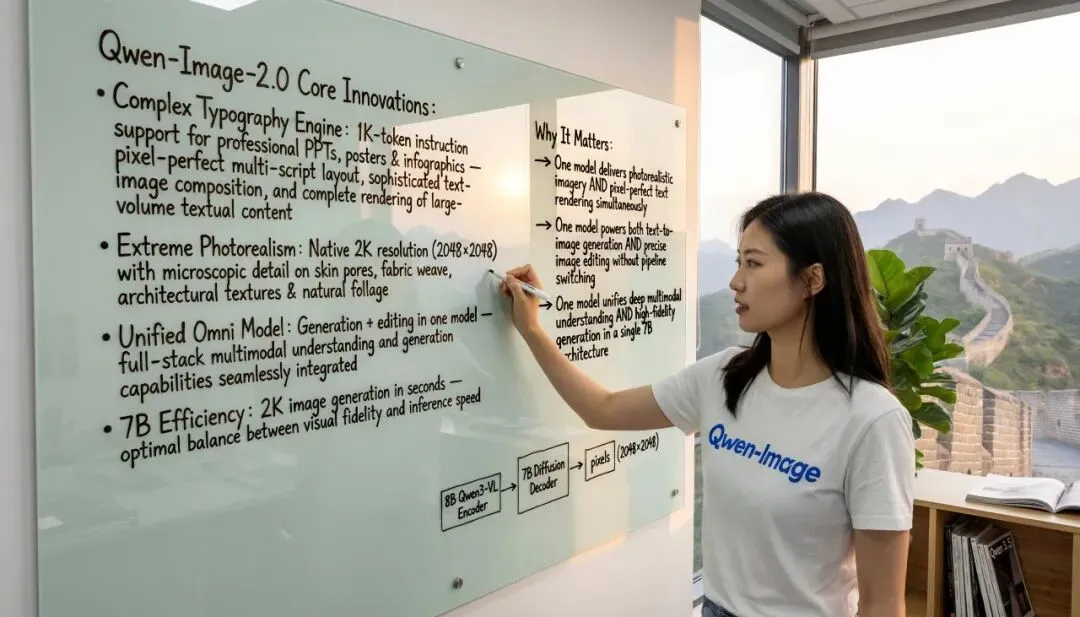 Qwen-Image-2.0 Core Innovations:
• Complex Typography Engine: 1K-token instruction
support for professional PPTs, posters & infographics —
pixel-perfect multi-script layout, sophisticated text-
image composition, and complete rendering of large-
volume textual content
• Extreme Photorealism: Native 2K resolution (2048×2048)
with microscopic detail on skin pores, fabric weave,
architectural textures & natural foliage
• Unified Omni Model: Generation + editing in one model —
full-stack multimodal understanding and generation
capabilities seamlessly integrated
• 7B Efficiency: 2K image generation in seconds —
optimal balance between visual fidelity and inference speed
Why It Matters:
→ One model delivers photorealistic
imagery AND pixel-perfect text
rendering simultaneously
→ One model powers both text-to-
image generation AND precise
image editing without pipeline
switching
→ One model unifies deep multimodal
understanding AND high-fidelity
generation in a single 7B
rchitecture
8B Qwen3-VL
Encoder
→
7B Diffusion
Decoder
→
pixels
(2048×2048)
Qwen-Image